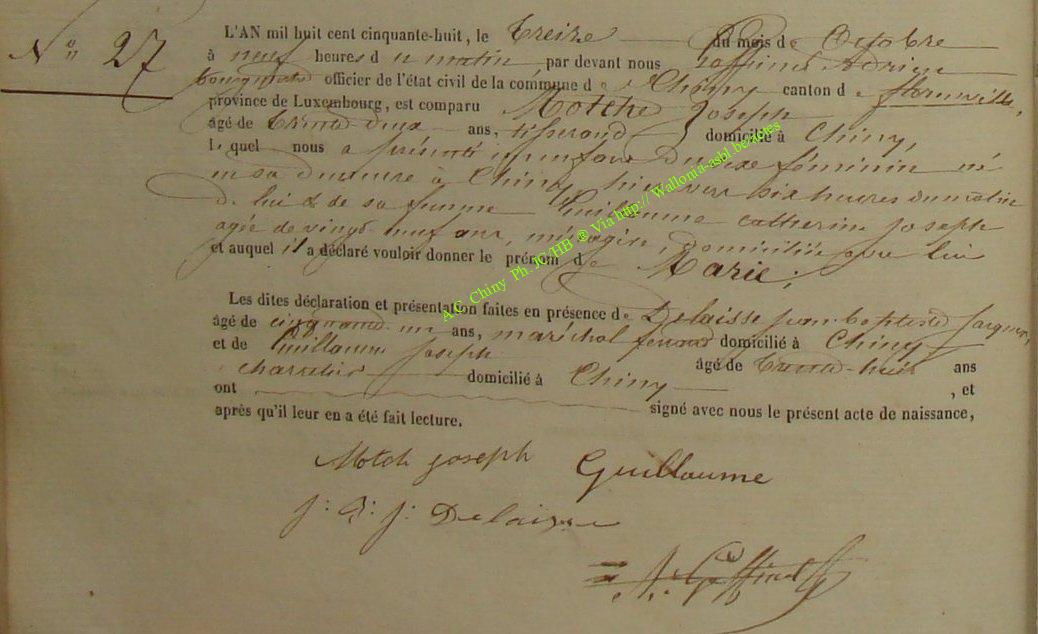 N° 27
L'AN mil huit cent cinquante-huit, le treize du mois de Octobre
à neuf heures du matin par devant nous Gaffinet Adrien
bourgmestre officier de l'état civil de la commune de Chiny canton de florenville,
province de Luxembourg, est comparu Motche Joseph
âgé de trente-deux ans, tisserand domicilié à Chiny,
lequel nous a présenté un enfant du sexe féminin né
en sa demeure à Chiny hier vers six heures du matin
de lui & de sa femme Guillaume catherine Joseph
agée de vingt neuf ans, ménagère, domiciliée avec lui
et auquel il a déclaré vouloir donner le prénom de Marie;
Les dites déclaration et présentation faites en présence de Delaisse jean baptiste Jacques,
âgé de cinquante un ans, maréchal ferrand domicilié à Chiny
et de Guillaume Joseph âgé de trente-huit ans
charretier domicilié à Chiny , et
ont signé avec nous le présent acte de naissance,
après qu'il leur en a été fait lecture.
Motch joseph Guillaume
j: B: j: Delaisse
A. Gaffinet
A.C. Chiny Ph. JC/HB ® Via http:// Wallonia-asbl.be/ages